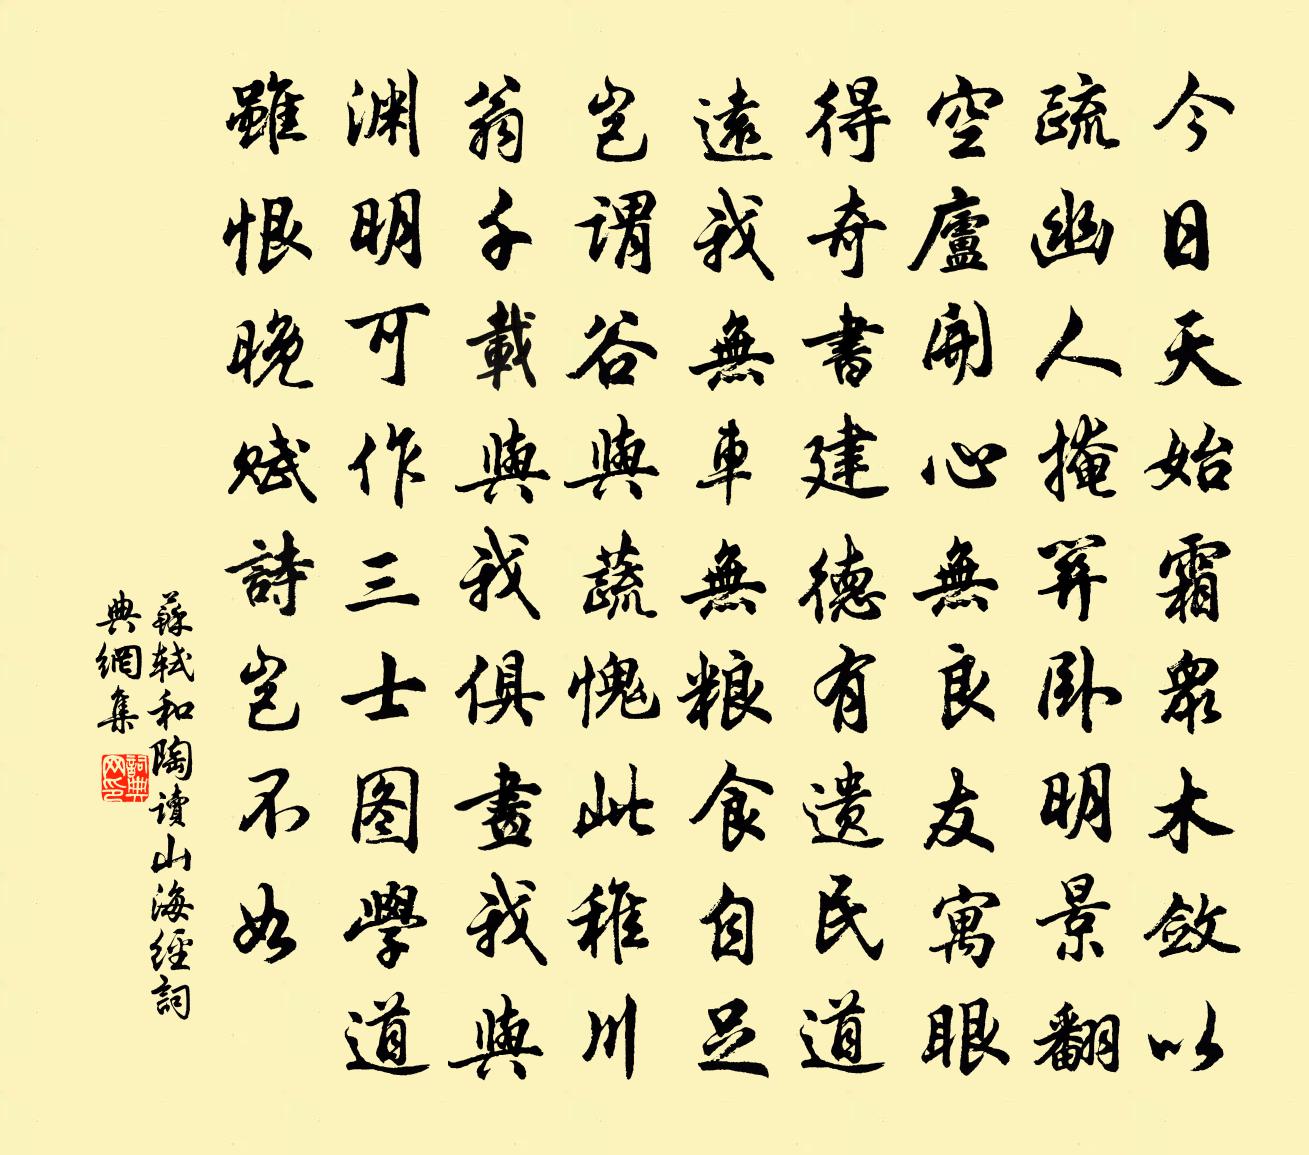 今日天始霜眾木斂以
疏幽人掩關卧明景翻
空廬開心無良友寓眼
得奇書建德有遗民道
遠我無車無粮食自足
豈謂谷與蔬愧此稚川
翁千載與我俱畫我與
渊明可作三士图學道
雖恨晚賦詩豈不如
蘇軾和陶讀山海經詞
典網集
詞典网印